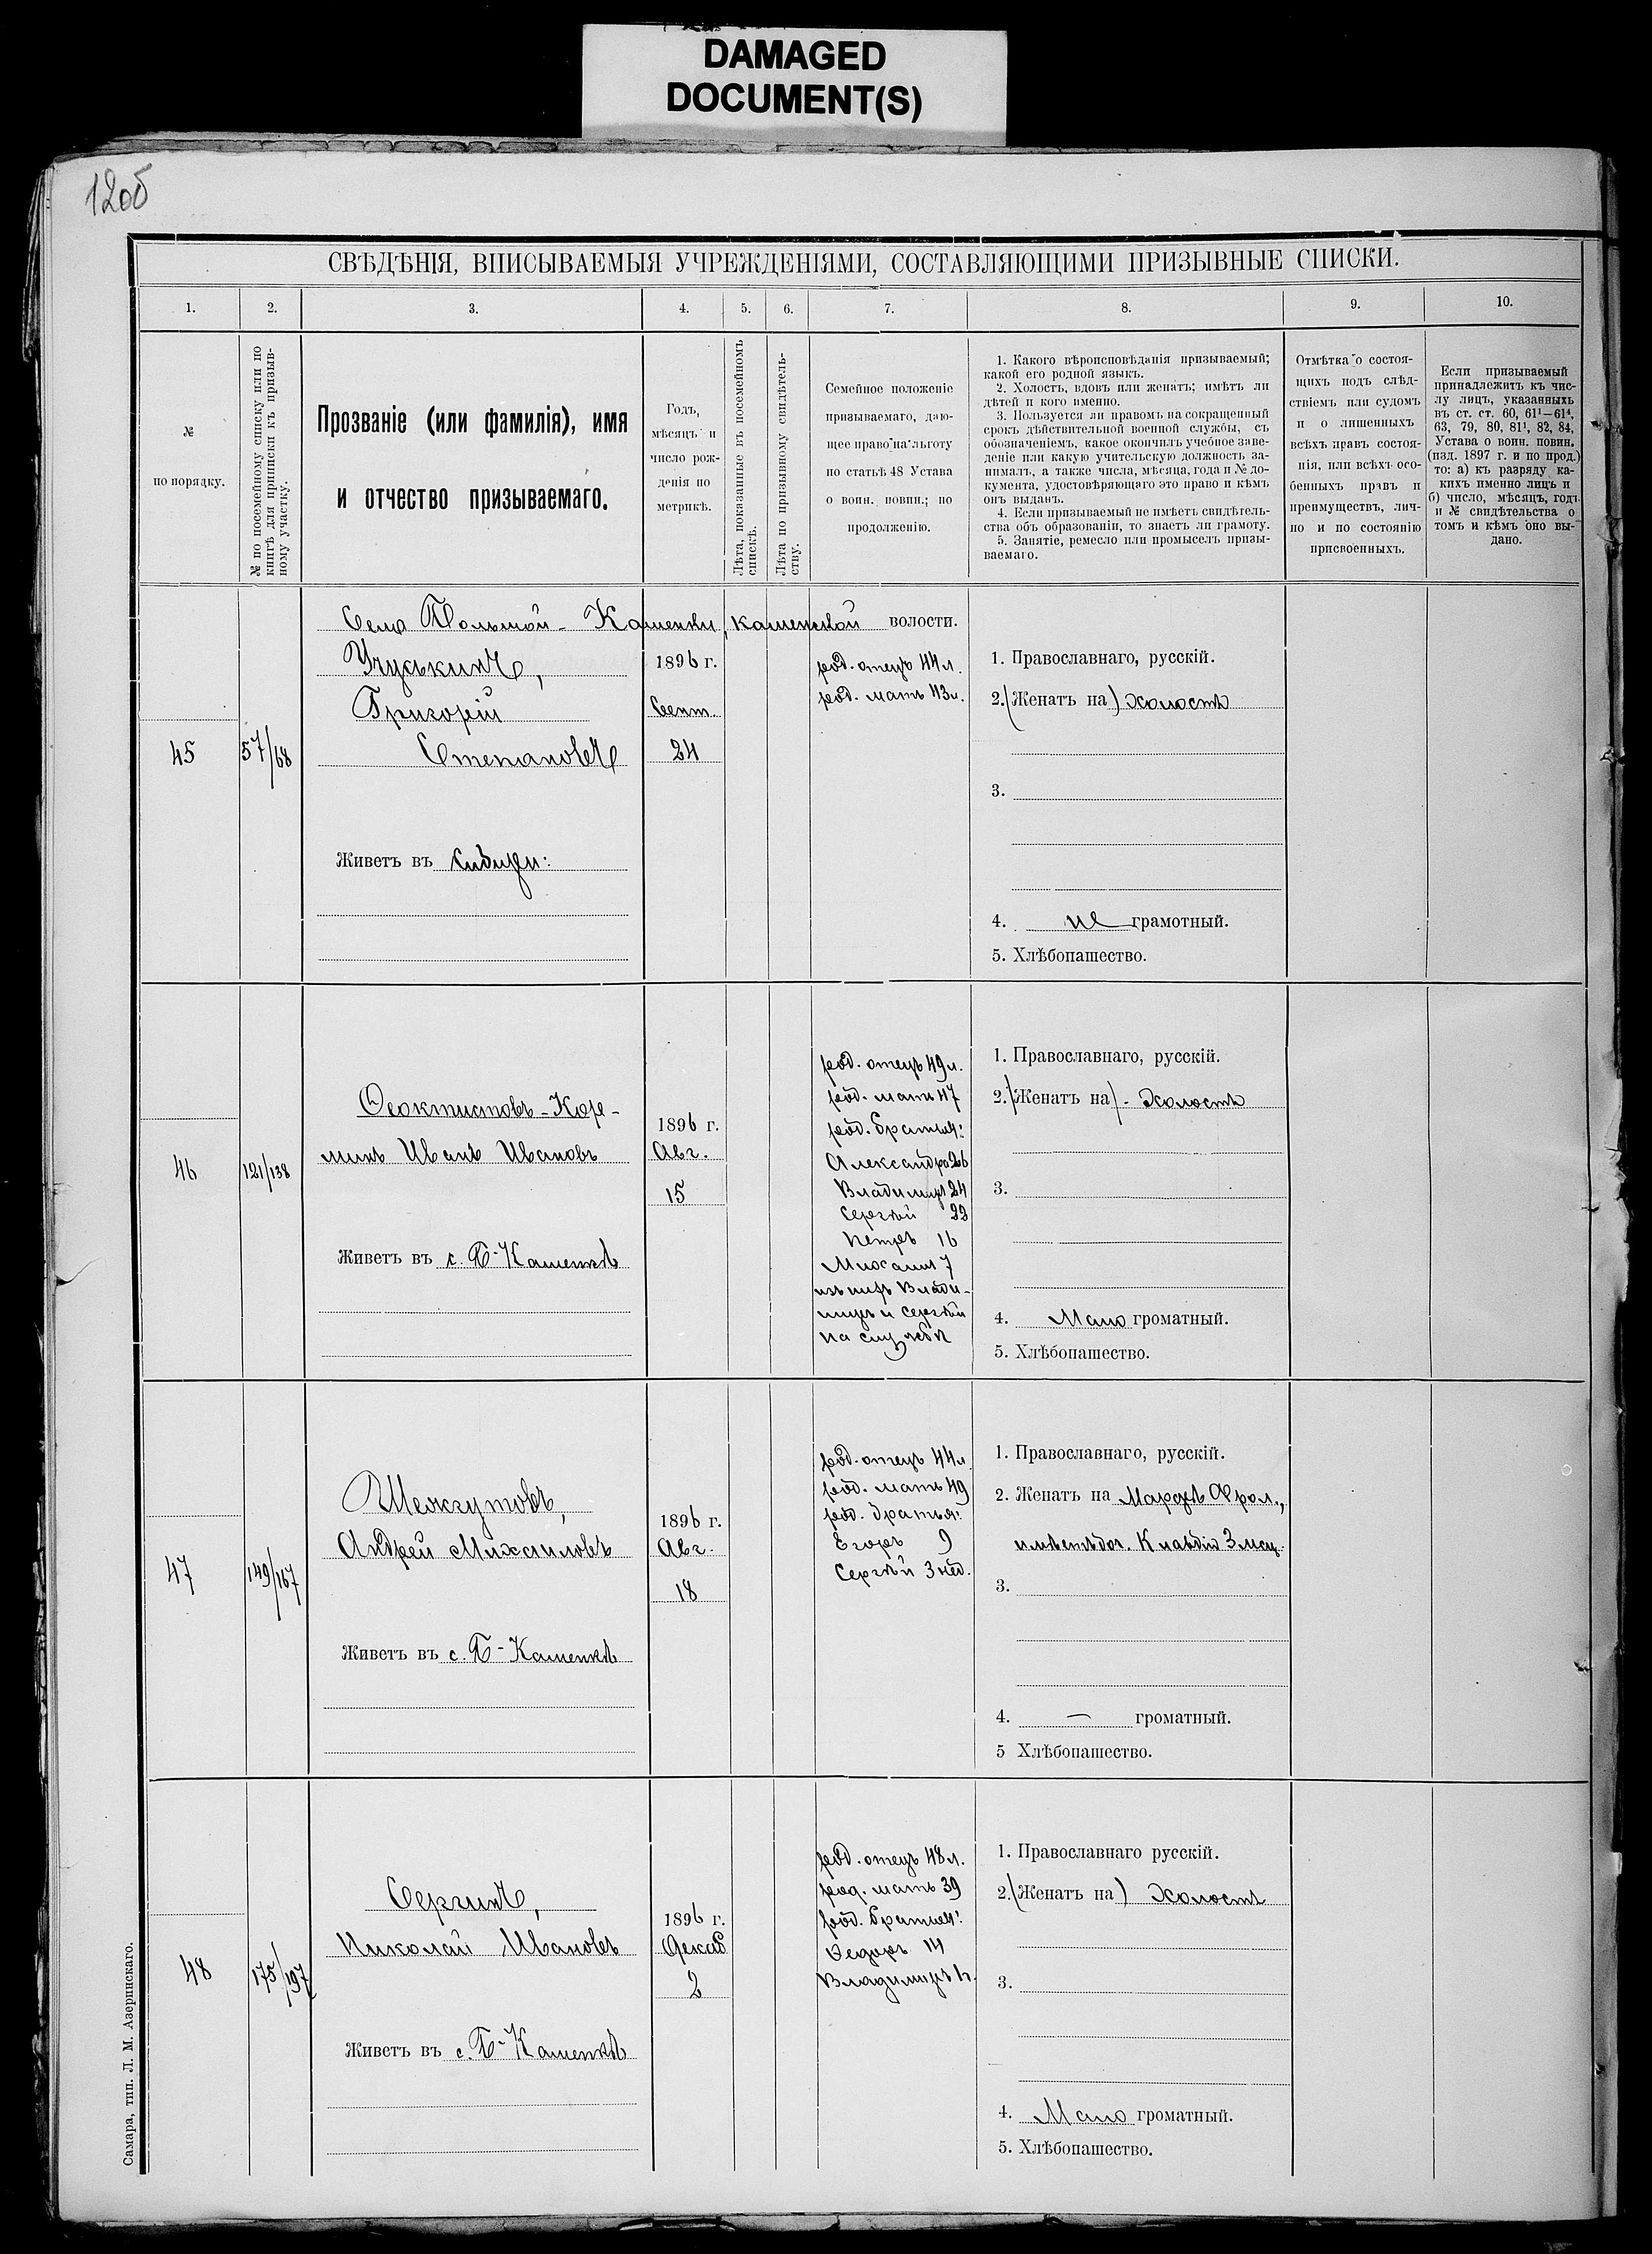 DAMAGED
DOCUMENT(S)
120б
СВѢДѢНІЯ, ВПИСЫВАЕМЫЯ УЧРЕЖДЕНІЯМИ, СОСТАВЛЯЮЩИМИ ПРИЗЫВНЫЕ СПИСКИ.
1. 2. 3. 4. 5. 6. 7. 8. 9. 10.
№
по порядку.
№ по посемейному списку или по
книгѣ для приписки къ призыв-
ному участку.
Прозваніе (или фамилія), имя
и отчество призываемаго.
Годъ,
мѣсяцъ и
число рож-
денія по
метрикѣ.
Лѣта, показанные въ посемейномъ
спискѣ.
Лѣта по призывному свидѣтель-
ству.
Семейное положеніе
призываемаго, даю-
щее право на льготу
по статьѣ 48 Устава
о воин. повин.; по
продолженію.
1. Какого вѣроисповѣданія призываемый;
какой его родной языкъ.
2. Холостъ, вдовъ или женатъ; имѣтъ ли
дѣтей и кого именно.
3. Пользуется ли правомъ на сокращенный
срокъ дѣйствительной военной службы, съ
обозначеніемъ, какое окончилъ учебное заве-
деніе или какую учительскую должность за-
нималъ, а также числа, мѣсяца, года и № до-
кумента, удостовѣряющаго это право и кѣмъ
онъ выданъ.
4. Если призываемый не имѣетъ свидѣтель-
ства объ образованіи, то знаетъ ли грамоту.
5. Занятіе, ремесло или промыселъ призы-
ваемаго.
Отмѣтка о состоя-
щихъ подъ слѣд-
ствіемъ или судомъ
и о лишенныхъ
всѣхъ правъ состоя-
нія, или всѣхъ осо-
бенныхъ правъ и
преимуществъ, лич-
но и по состоянію
присвоенныхъ.
Если призываемый
принадлежитъ къ чис-
лу лицъ, указанныхъ
въ ст. ст. 60, 61¹—61⁴,
63, 79, 80, 81¹, 82, 84,
Устава о воин. повин.
(изд. 1897 г. и по прод.)
то: а) къ разряду ка-
кихъ именно лицъ и
б) число, мѣсяцъ, годъ
и № свидѣтельства о
томъ и кѣмъ оно вы-
дано.
Села Большой-Каменки, Каменской волости.
45
57/68
Учуськинъ,
Григорій
Степановъ
Живетъ въ Сибири:
1896 г.
Сент.
24
род. отецъ 44 л.
род. мать 43 л.
1. Православнаго, русскій.
2. (Женатъ на) Холостъ
3.
4. не грамотный.
5. Хлѣбопашество.
46
121/138
Феоктистовъ-Коре-
минъ Иванъ Ивановъ
Живетъ въ с. Б-Каменкѣ
1896 г.
Авг.
15
род. отецъ 49 л.
род. мать 47
род. братья:
Александръ 26
Владимиръ 24
Сергѣй 22
Петръ 16
Михаилъ 7
изъ нихъ Влади-
миръ и Сергѣй
на службѣ
1. Православнаго, русскій.
2. (Женатъ на) - Холостъ
3.
4. Мало громатный.
5. Хлѣбопашество.
47
149/167
Шежгутовъ,
Андрей Михаиловъ
Живетъ въ с. Б-Каменкѣ
1896 г.
Авг.
18
род. отецъ 44 л.
род. мать 49
род. братья:
Егоръ 9
Сергѣй 3 нед.
1. Православнаго, русскій.
2. Женатъ на Марфѣ Фрол.,
имѣетъ доч. Клавдію 3 мѣс.
3.
4. — громатный.
5 Хлѣбопашество.
48
175/197
Сергинъ,
Николай Ивановъ
Живетъ въ с. Б-Каменкѣ
1896 г.
Декаб
2
род. отецъ 48 л.
род. мать 39
род. братья:
Федоръ 14
Владимиръ
1. Православнаго русскій.
2. (Женатъ на) Холостъ
3.
4. Мало громатный.
5. Хлѣбопашество.
Самара, тип. Л. М. Азеринскаго.